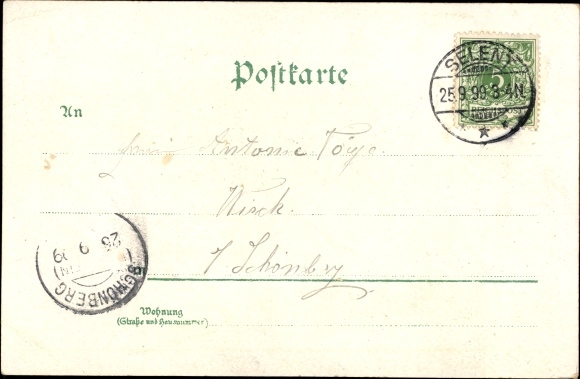 Postkarte
SELENT
25.9.99.3-4N.
An
Antonie
Wisch.
b/ Schönberg
SCHÖNBERG
9 99
Wohnung
(Straße und Hausnummer)